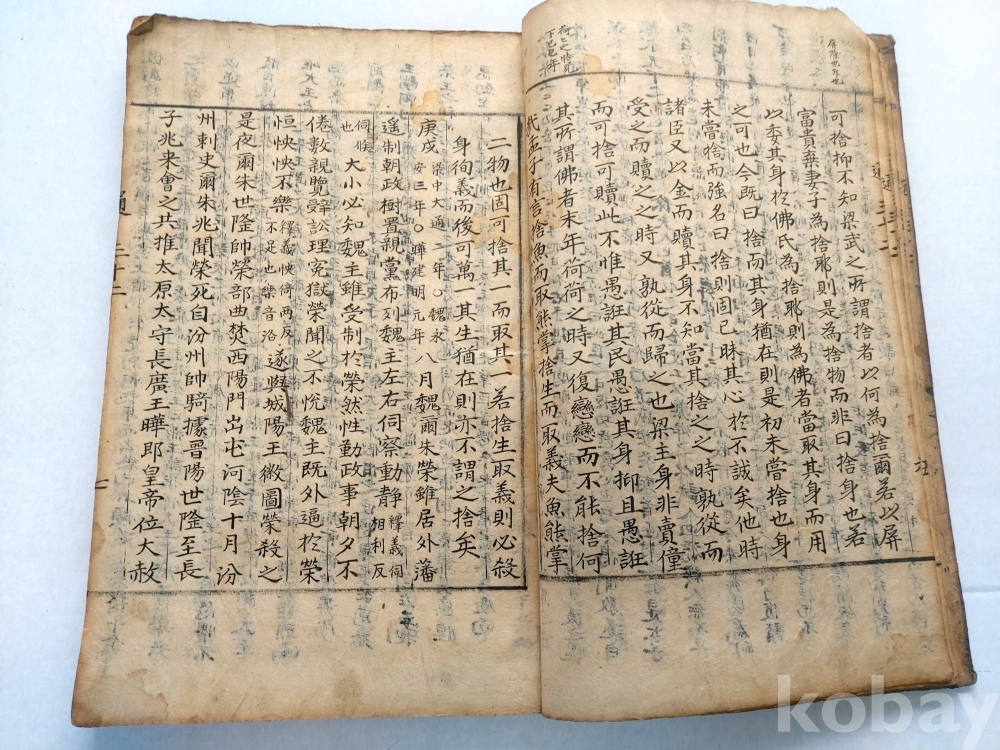 可捨抑不知梁武之所謂捨者以何為捨爾若以屏
富貴棄妻子為捨耶則是為捨物而非曰捨身也若
以委其身於佛氏為捨耶則為佛者當取其身而用
之可也今既曰捨而其身猶在則是初未嘗捨也身
未嘗捨而強名曰捨則固已昧其心於不誠矣他時
諸臣又以金而贖其身不知當其捨之之時孰從而
受之而贖之之時又孰從而歸之也梁主身非賣僮
而可捨可贖此不惟愚誑其民愚誑其身抑且愚誑
其所謂佛者末年荷荷之時又復戀戀而不能捨何
哉孟子有言捨魚而取熊掌捨生而取義夫魚熊掌
二物也固可捨其一而取其一若捨生取義則必殺
身徇義而後可萬一其生猶在則亦不謂之捨矣
庚戌 梁中大通二年○魏永安三年○曄建明元年 八月魏爾朱榮雖居外藩
遙制朝政樹置親黨布列魏主左右伺察動靜 釋義伺相利反
伺候也 大小必知魏主雖受制於榮然性勤政事朝夕不
倦數親覽辭訟理冤獄榮聞之不悅魏主既外逼於榮
恒怏怏不樂 釋義怏倚兩反不足也樂音洛 遂與城陽王徽圖榮殺之
是夜爾朱世隆帥榮部曲焚西陽門出屯河陰十月汾
州刺史爾朱兆聞榮死自汾州帥騎據晉陽世隆至長
子兆来會之共推太原太守長廣王曄郎皇帝位大赦
通 三十二
kobay